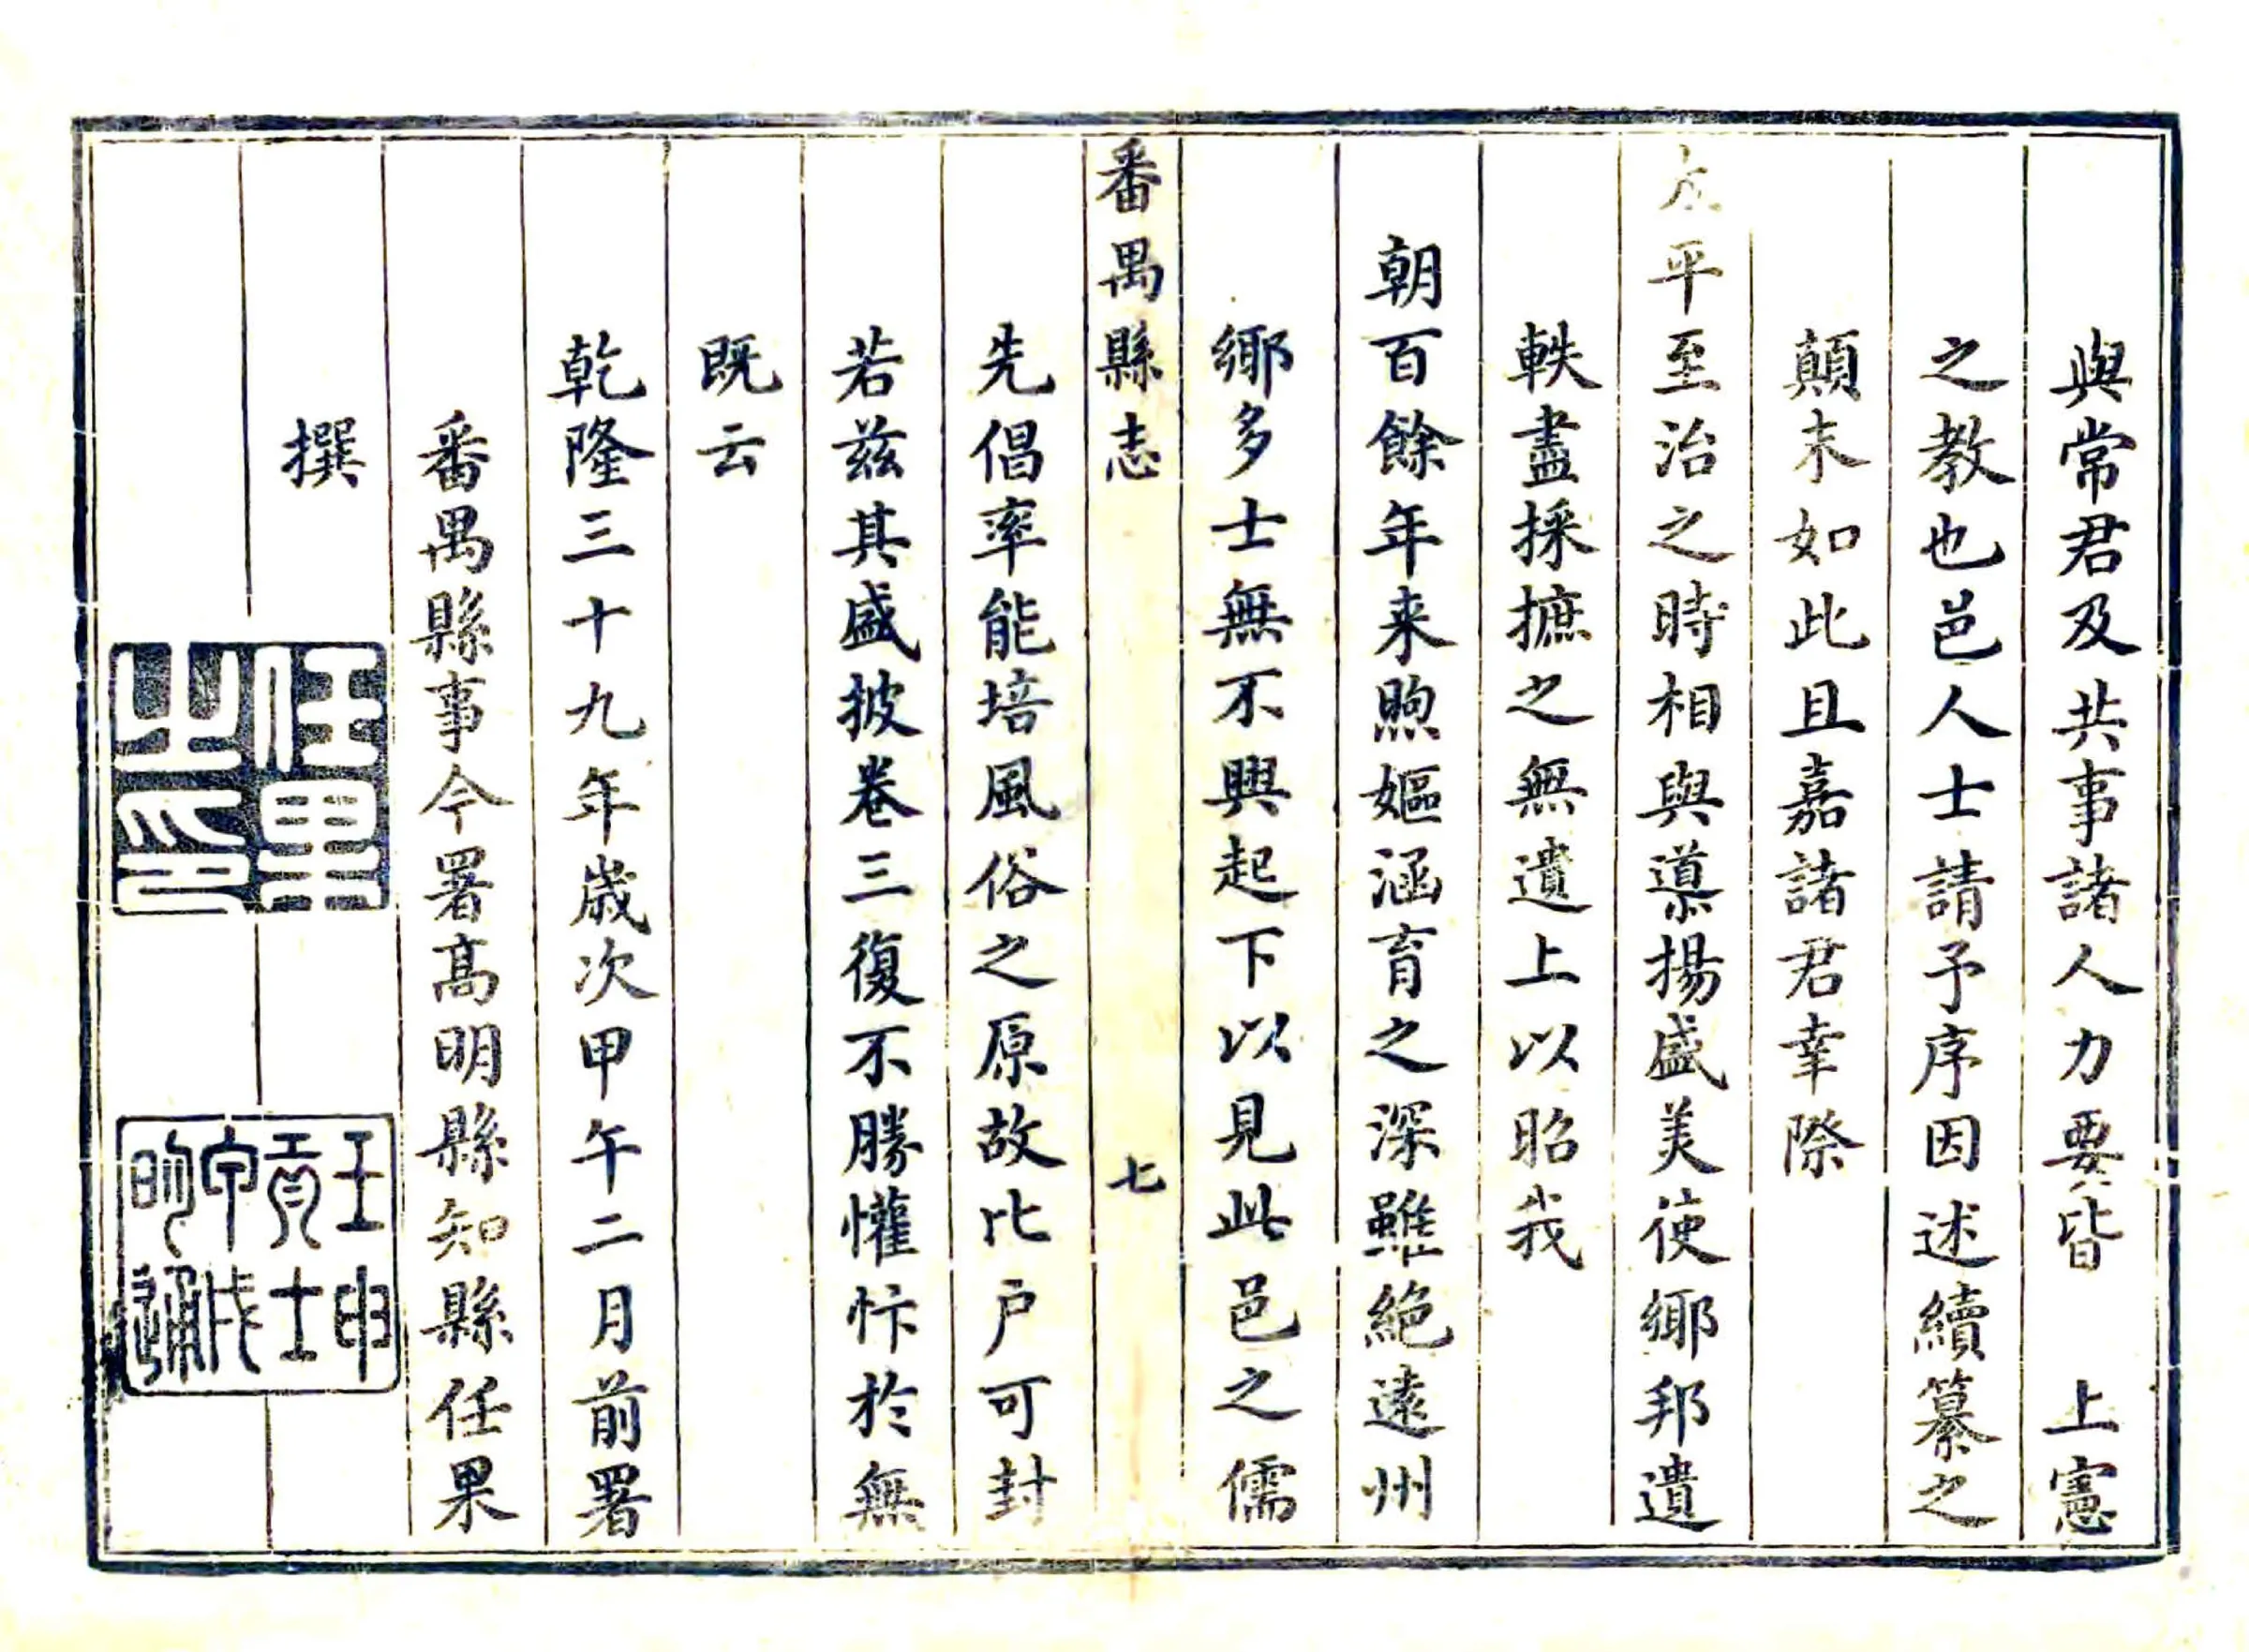 與常君及共事諸人力要皆 上憲
之教也邑人士請予序因述續纂之
顛末如此且嘉諸君幸際
太平至治之時相與導揚盛美使鄉邦遺
軼盡採摭之無遺上以昭我
朝百餘年来煦嫗涵育之深雖絕遠州
鄉多士無不興起下以見此邑之儒
番禺縣志 七
先倡率能培風俗之原故比户可封
若兹其盛披卷三復不勝懽忭於無
既云
乾隆三十九年歳次甲午二月前署
番禺縣事今署高明縣知縣任果
撰
任果之印
壬申貢士甲戌明通